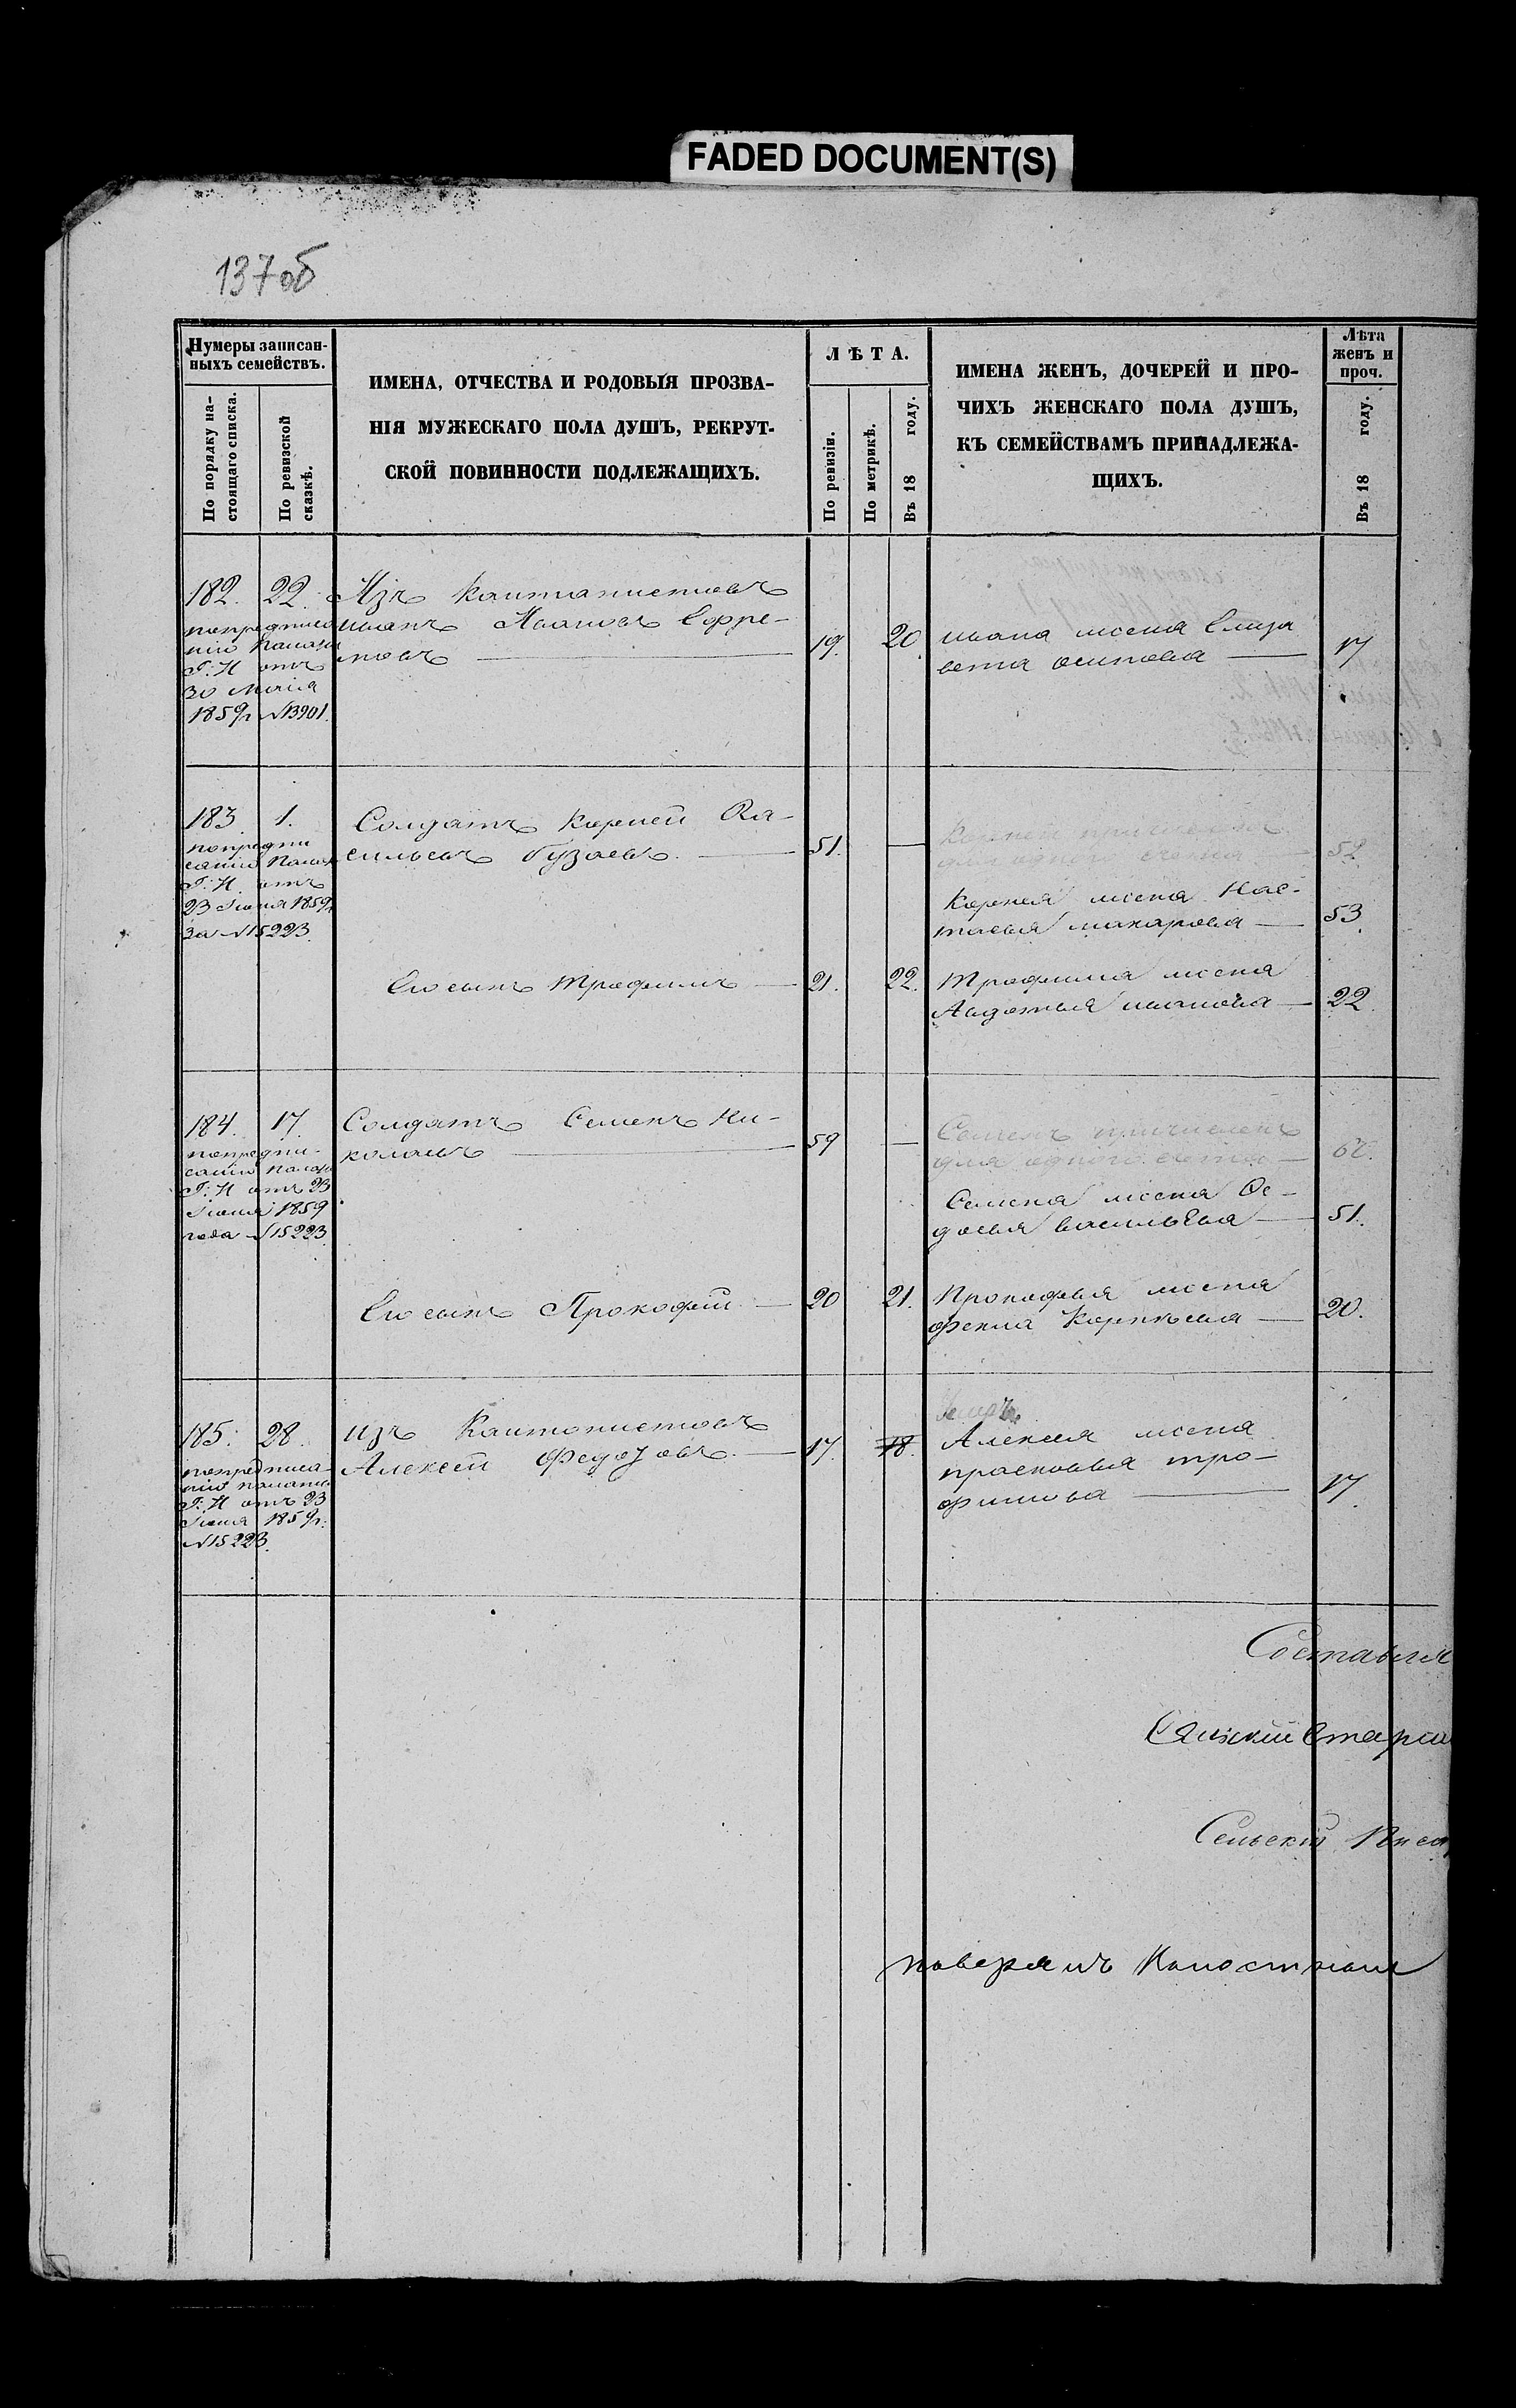 FADED DOCUMENT(S)
137 об
Нумеры записан-
ныхъ семействъ.
По порядку на-
стоящаго списка.
По ревизской
сказкѣ.
ИМЕНА, ОТЧЕСТВА И РОДОВЫЯ ПРОЗВА-
НІЯ МУЖЕСКАГО ПОЛА ДУШЪ, РЕКРУТ-
СКОЙ ПОВИННОСТИ ПОДЛЕЖАЩИХЪ.
ЛѢТА.
По ревизіи.
По метрикѣ.
Въ 18 году.
ИМЕНА ЖЕНЪ, ДОЧЕРЕЙ И ПРО-
ЧИХЪ ЖЕНСКАГО ПОЛА ДУШЪ,
КЪ СЕМЕЙСТВАМЪ ПРИНАДЛЕЖА-
ЩИХЪ.
Лѣта
женъ и
проч.
Въ 18 году.
182. 22.
попредписа
нію Палаты
Г. И. отъ
30 Маія
1859г №13901.
Изъ Кантанистовъ
иванъ Ивановъ Ефре-
мовъ
19. 20.
ивана жена Елиза
вета осипова
17
183. 1.
попредпи
санію Палат
Г. И. отъ
23 Іюня 1859г
За №15223.
Солдатъ Корней Ва-
сильевъ Бузаевъ.
51. —
Корней причисленъ
для одного счета
52.
Корнея жена Нас-
тасья макарова
53.
Его сынъ Трофимъ
21. 22.
Трофима жена
Авдотья иванова
22.
184. 17.
попредпи-
санію палаты
Г. И отъ 23
Іюня 1859
года №15223.
Солдатъ Семенъ Ни-
колаевъ
59 —
Семенъ причисленъ
для одного счета
60.
Семена жена Ѳе-
досья васильева
51.
Его сынъ Прокофій
20 21.
Прокофья жена
фекла Корнѣева
20.
185. 28.
попредписа-
нію палаты
Г. И отъ 23
Іюня 1859г.
№15223.
изъ Кантонистовъ
Алексей Федотовъ.
17. 18.
Умеръ
Алексея жена
прасковья тро-
фимова
17.
Составля
Сельскій Старши
Сельскій Писар
поверялъ